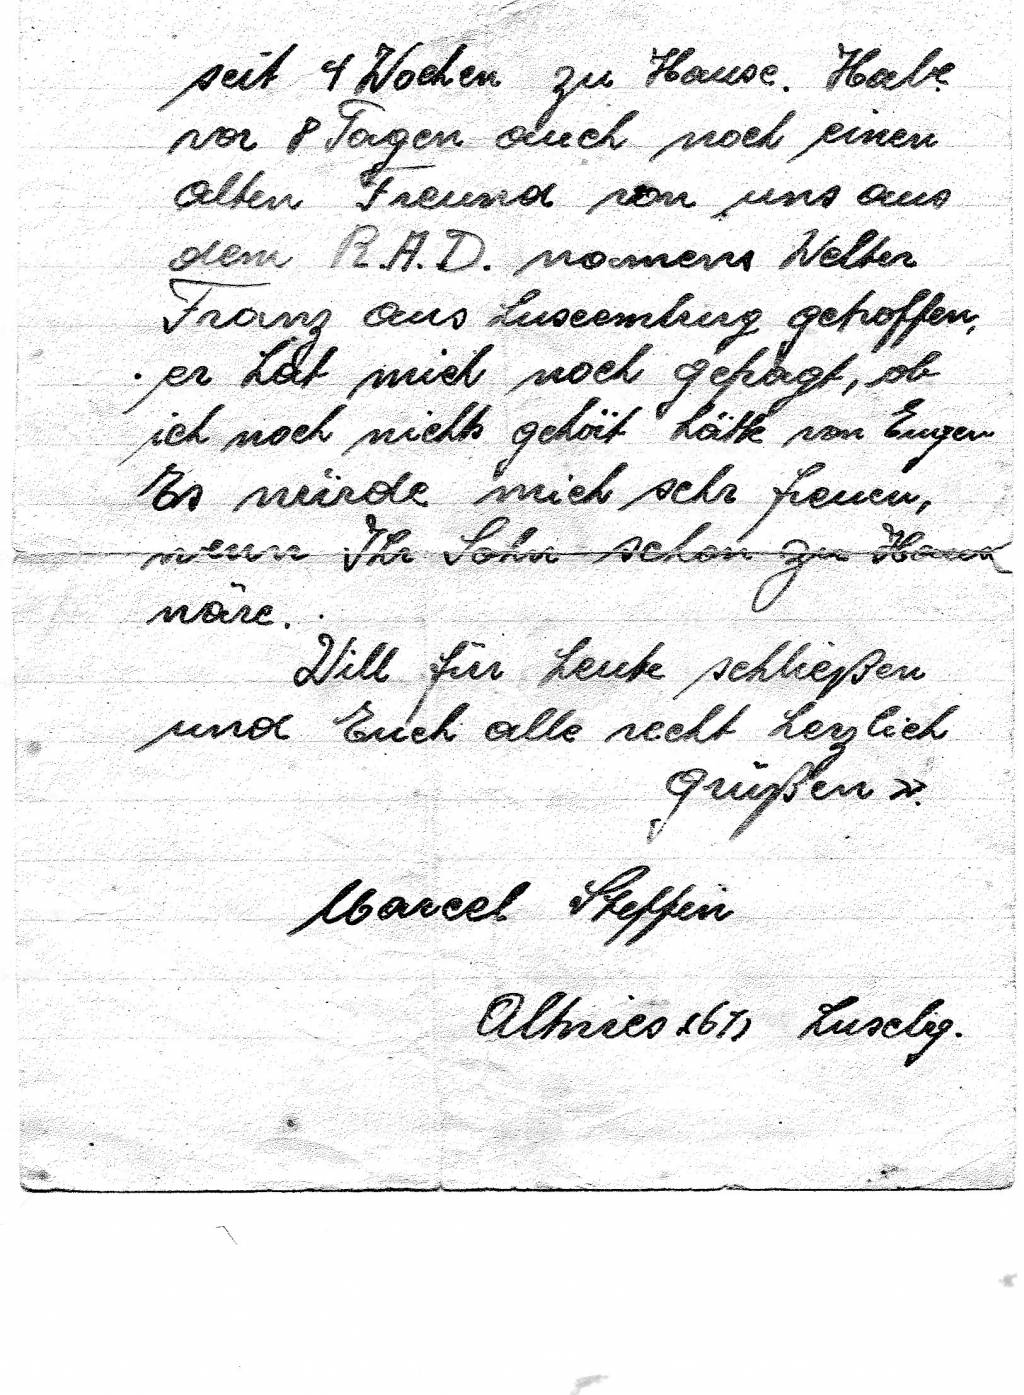 seit 4 Wochen zu Hause. Habe
vor 8 Tagen auch noch einen
alten Freund von uns aus
dem R.A.D. namens Welter
Franz aus Luxemburg getroffen,
er hat mich noch gefragt, ob
ich noch nichts gehört hätte von Eugen
Es würde mich sehr freuen,
wenn Ihr Sohn schon zu Hause
wäre.
Will für heute schließen
und Euch alle recht herzlich
grüßen
Marcel Steffen
Altwies Luxbg.